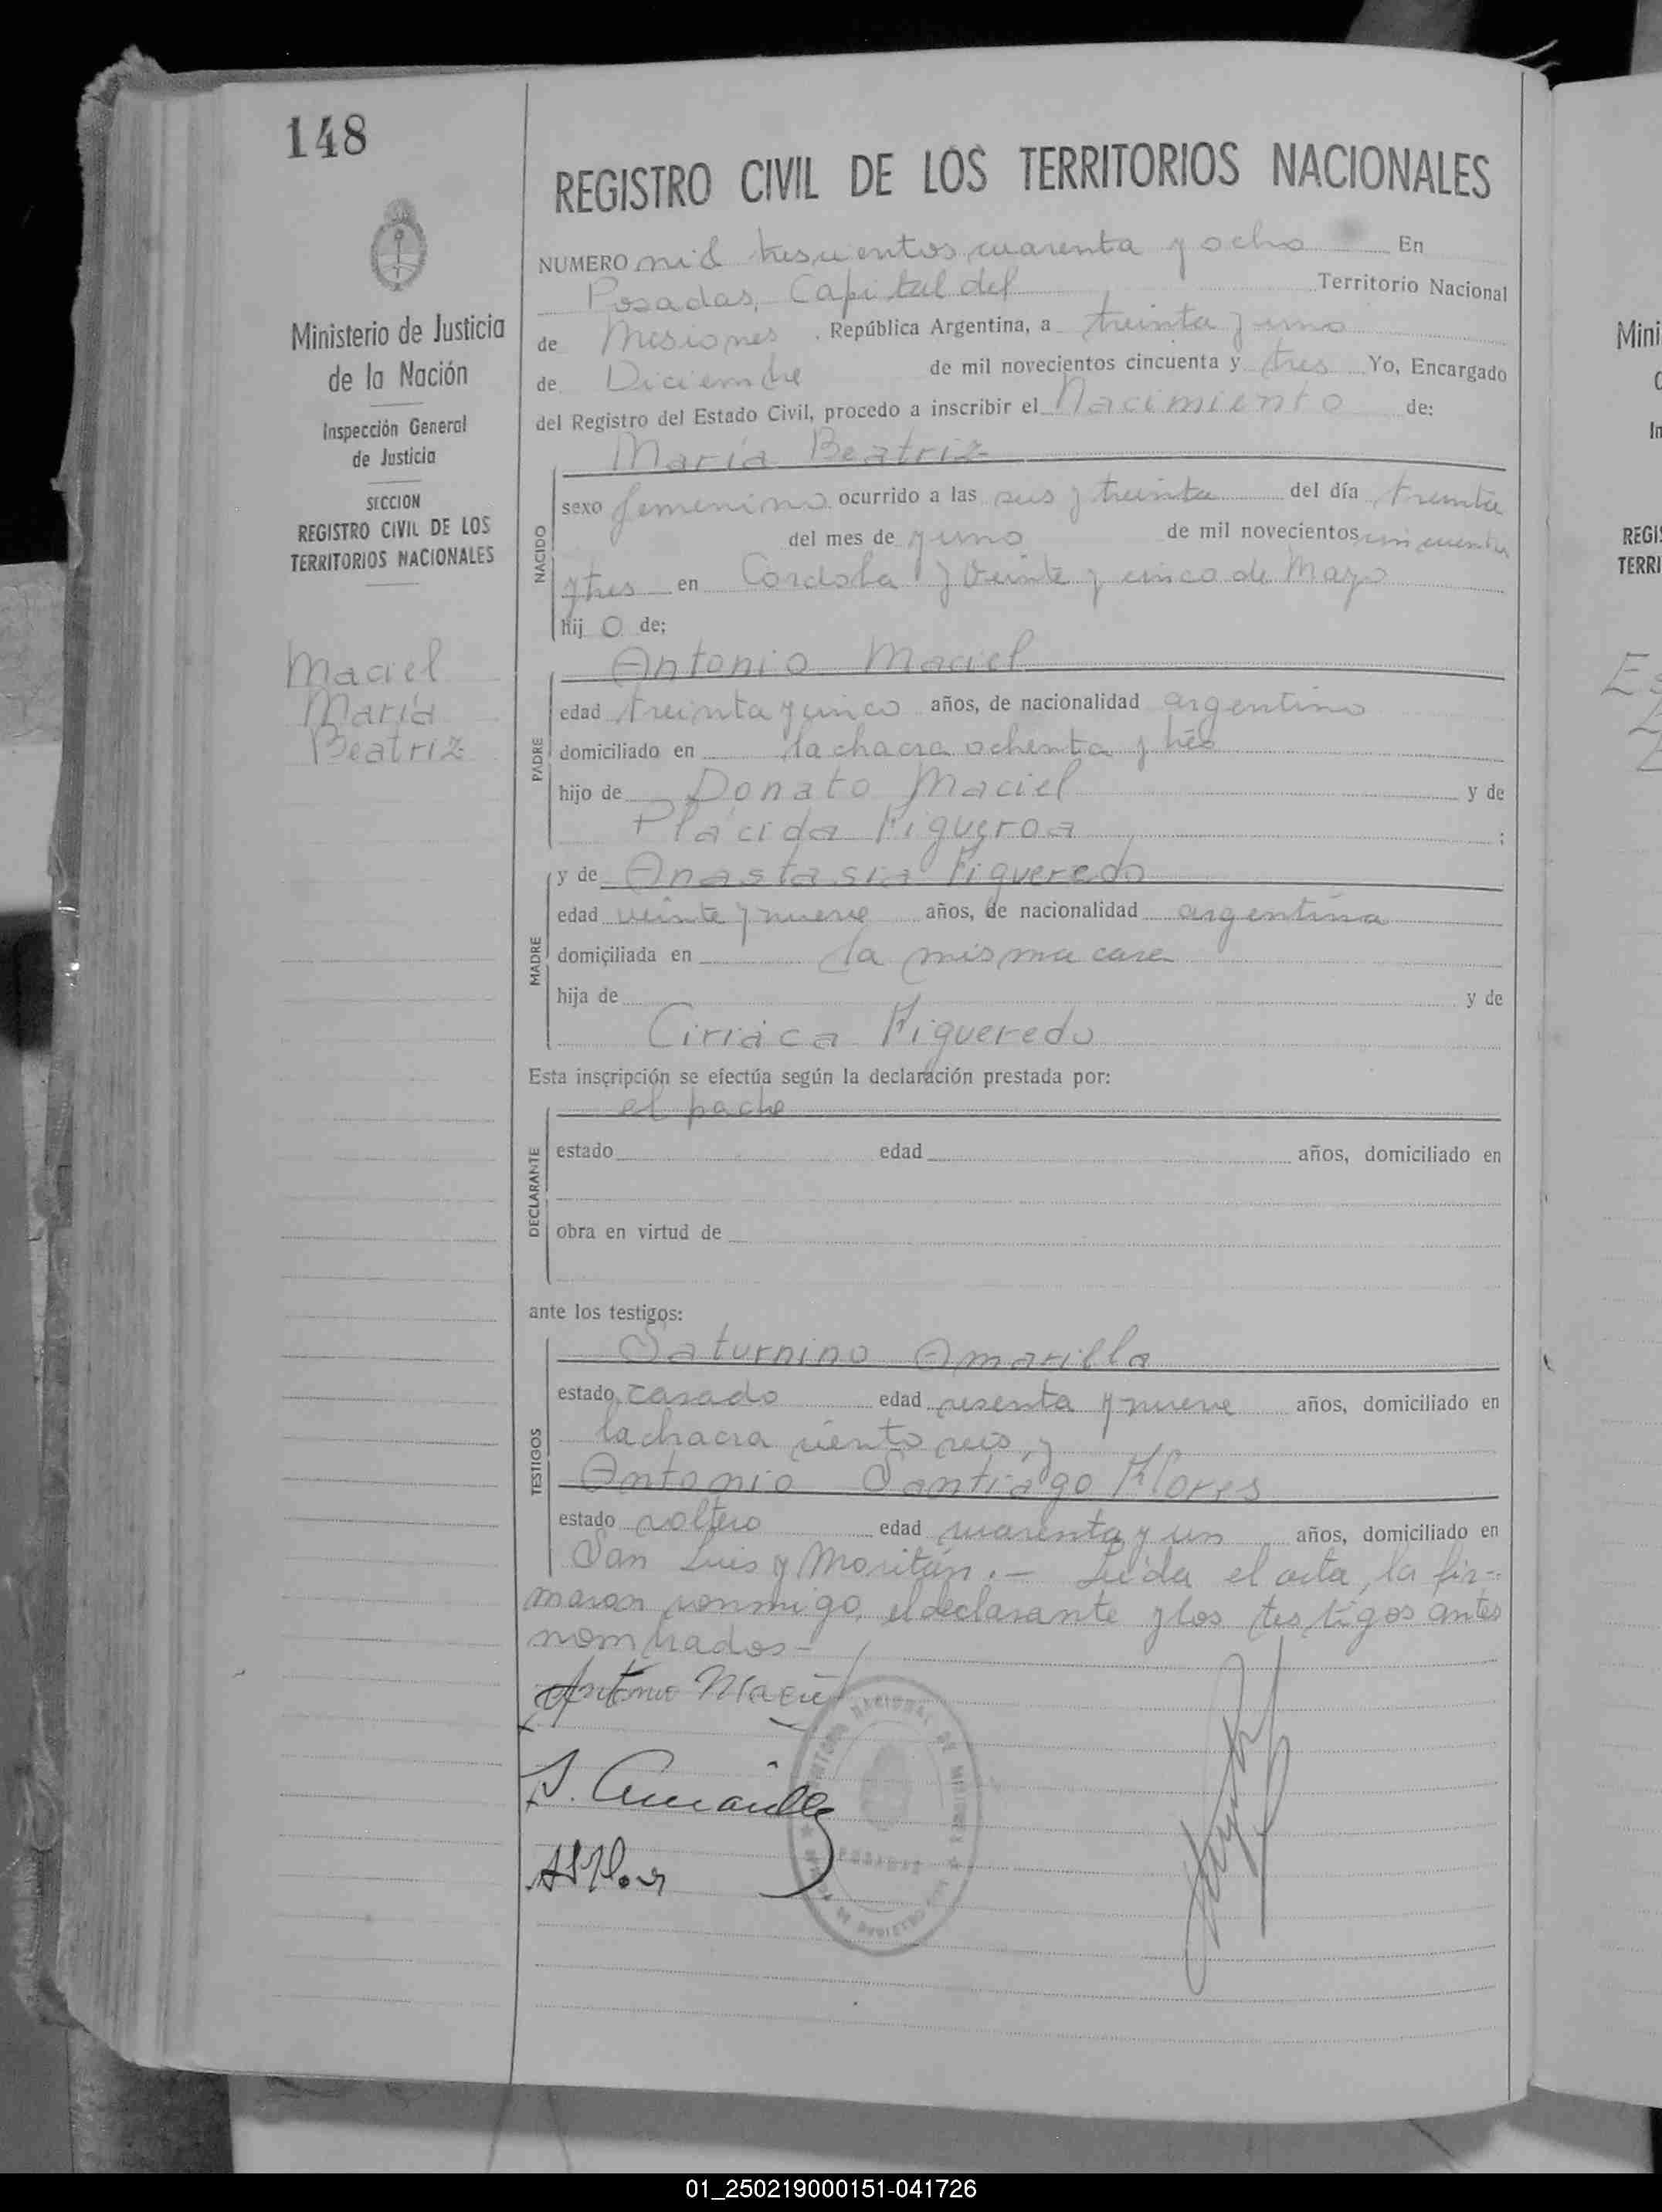 148
REGISTRO CIVIL DE LOS TERRITORIOS NACIONALES
Ministerio de Justicia
de la Nación
Inspección General
de Justicia
SECCION
REGISTRO CIVIL DE LOS
TERRITORIOS NACIONALES
Maciel
María
Beatriz
NUMERO mil trescientos cuarenta y ocho En
Posadas, Capital del Territorio Nacional
de Misiones . República Argentina, a treinta y uno
de Diciembre de mil novecientos cincuenta y tres Yo, Encargado
del Registro del Estado Civil, procedo a inscribir el Nacimiento de:
NACIDO
María Beatriz
sexo femenino ocurrido a las seis y treinta del día treinta
del mes de de mil novecientos cincuenta
y tres en Cordoba y Veinte y cinco de Mayo
hij o de;
PADRE
Antonio Maciel
edad treinta y cinco años, de nacionalidad argentino
domiciliado en la chacra ochenta y tres
hijo de Donato Maciel y de
Plácida Figueroa ;
MADRE
y de Anastasia Figueredo
edad veinte y nueve años, de nacionalidad argentina
domiciliada en la misma casa
hija de y de
Ciriáca Figueredo
Esta inscripción se efectúa según la declaración prestada por:
DECLARANTE
el padre
estado edad años, domiciliado en
obra en virtud de
ante los testigos:
TESTIGOS
Saturnino Amarilla
estado casado edad sesenta y nueve años, domiciliado en
la chacra ciento seis, y
Antonio Santiágo Flores
estado soltero edad cuarenta y un años, domiciliado en
San Luis y Moritán.- Leída el acta, la fir-
maron conmigo, el declarante y los testigos antes
nombrados-
Antonio Maciel
S. Amarilla
POSADAS
Mini
REGIS
TERRI
01_250219000151-041726